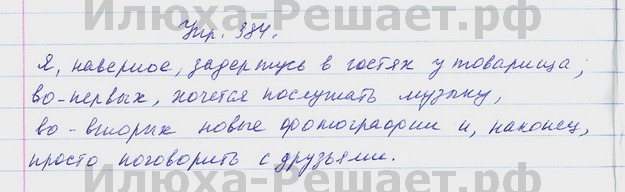 Илюха-Решает.рф
Упр. 384.
Я, наверное, задержусь в гостях у товарища;
во-первых, хочется послушать музыку,
во-вторых новые фотографии и, наконец,
просто поговорить с друзьями.
Илюха-Решает.рф